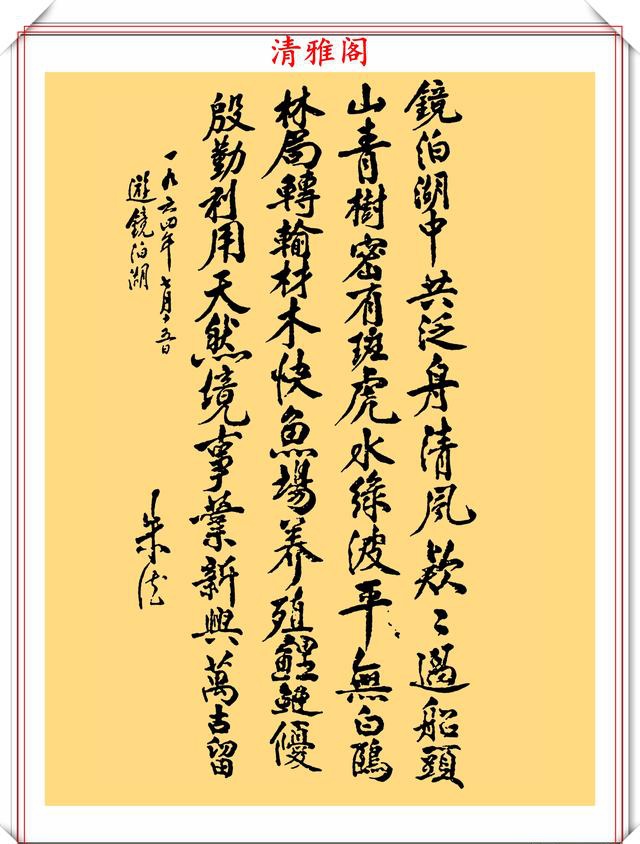 清雅阁
鏡泊湖中共泛舟清風欵〻過船頭
山青樹密有斑虎水綠波平無白鷗
林局轉輸材木快魚場养殖鯉鯿優
殷勤利用天然境事業新興萬古留
一九六四年七月十五日
遊鏡泊湖
朱德